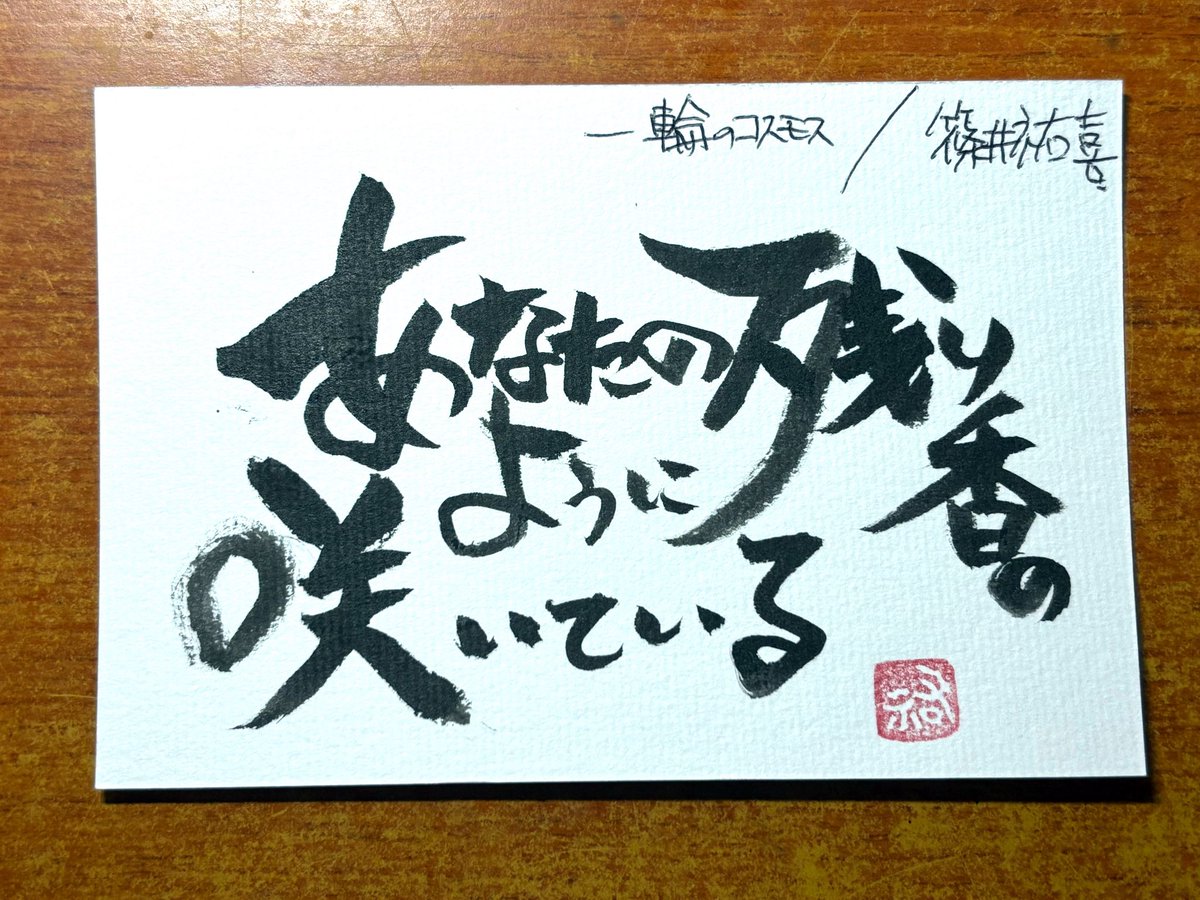 一輪のコスモス/篠井祐喜
あなたの残り香の
ように
咲いている
祐